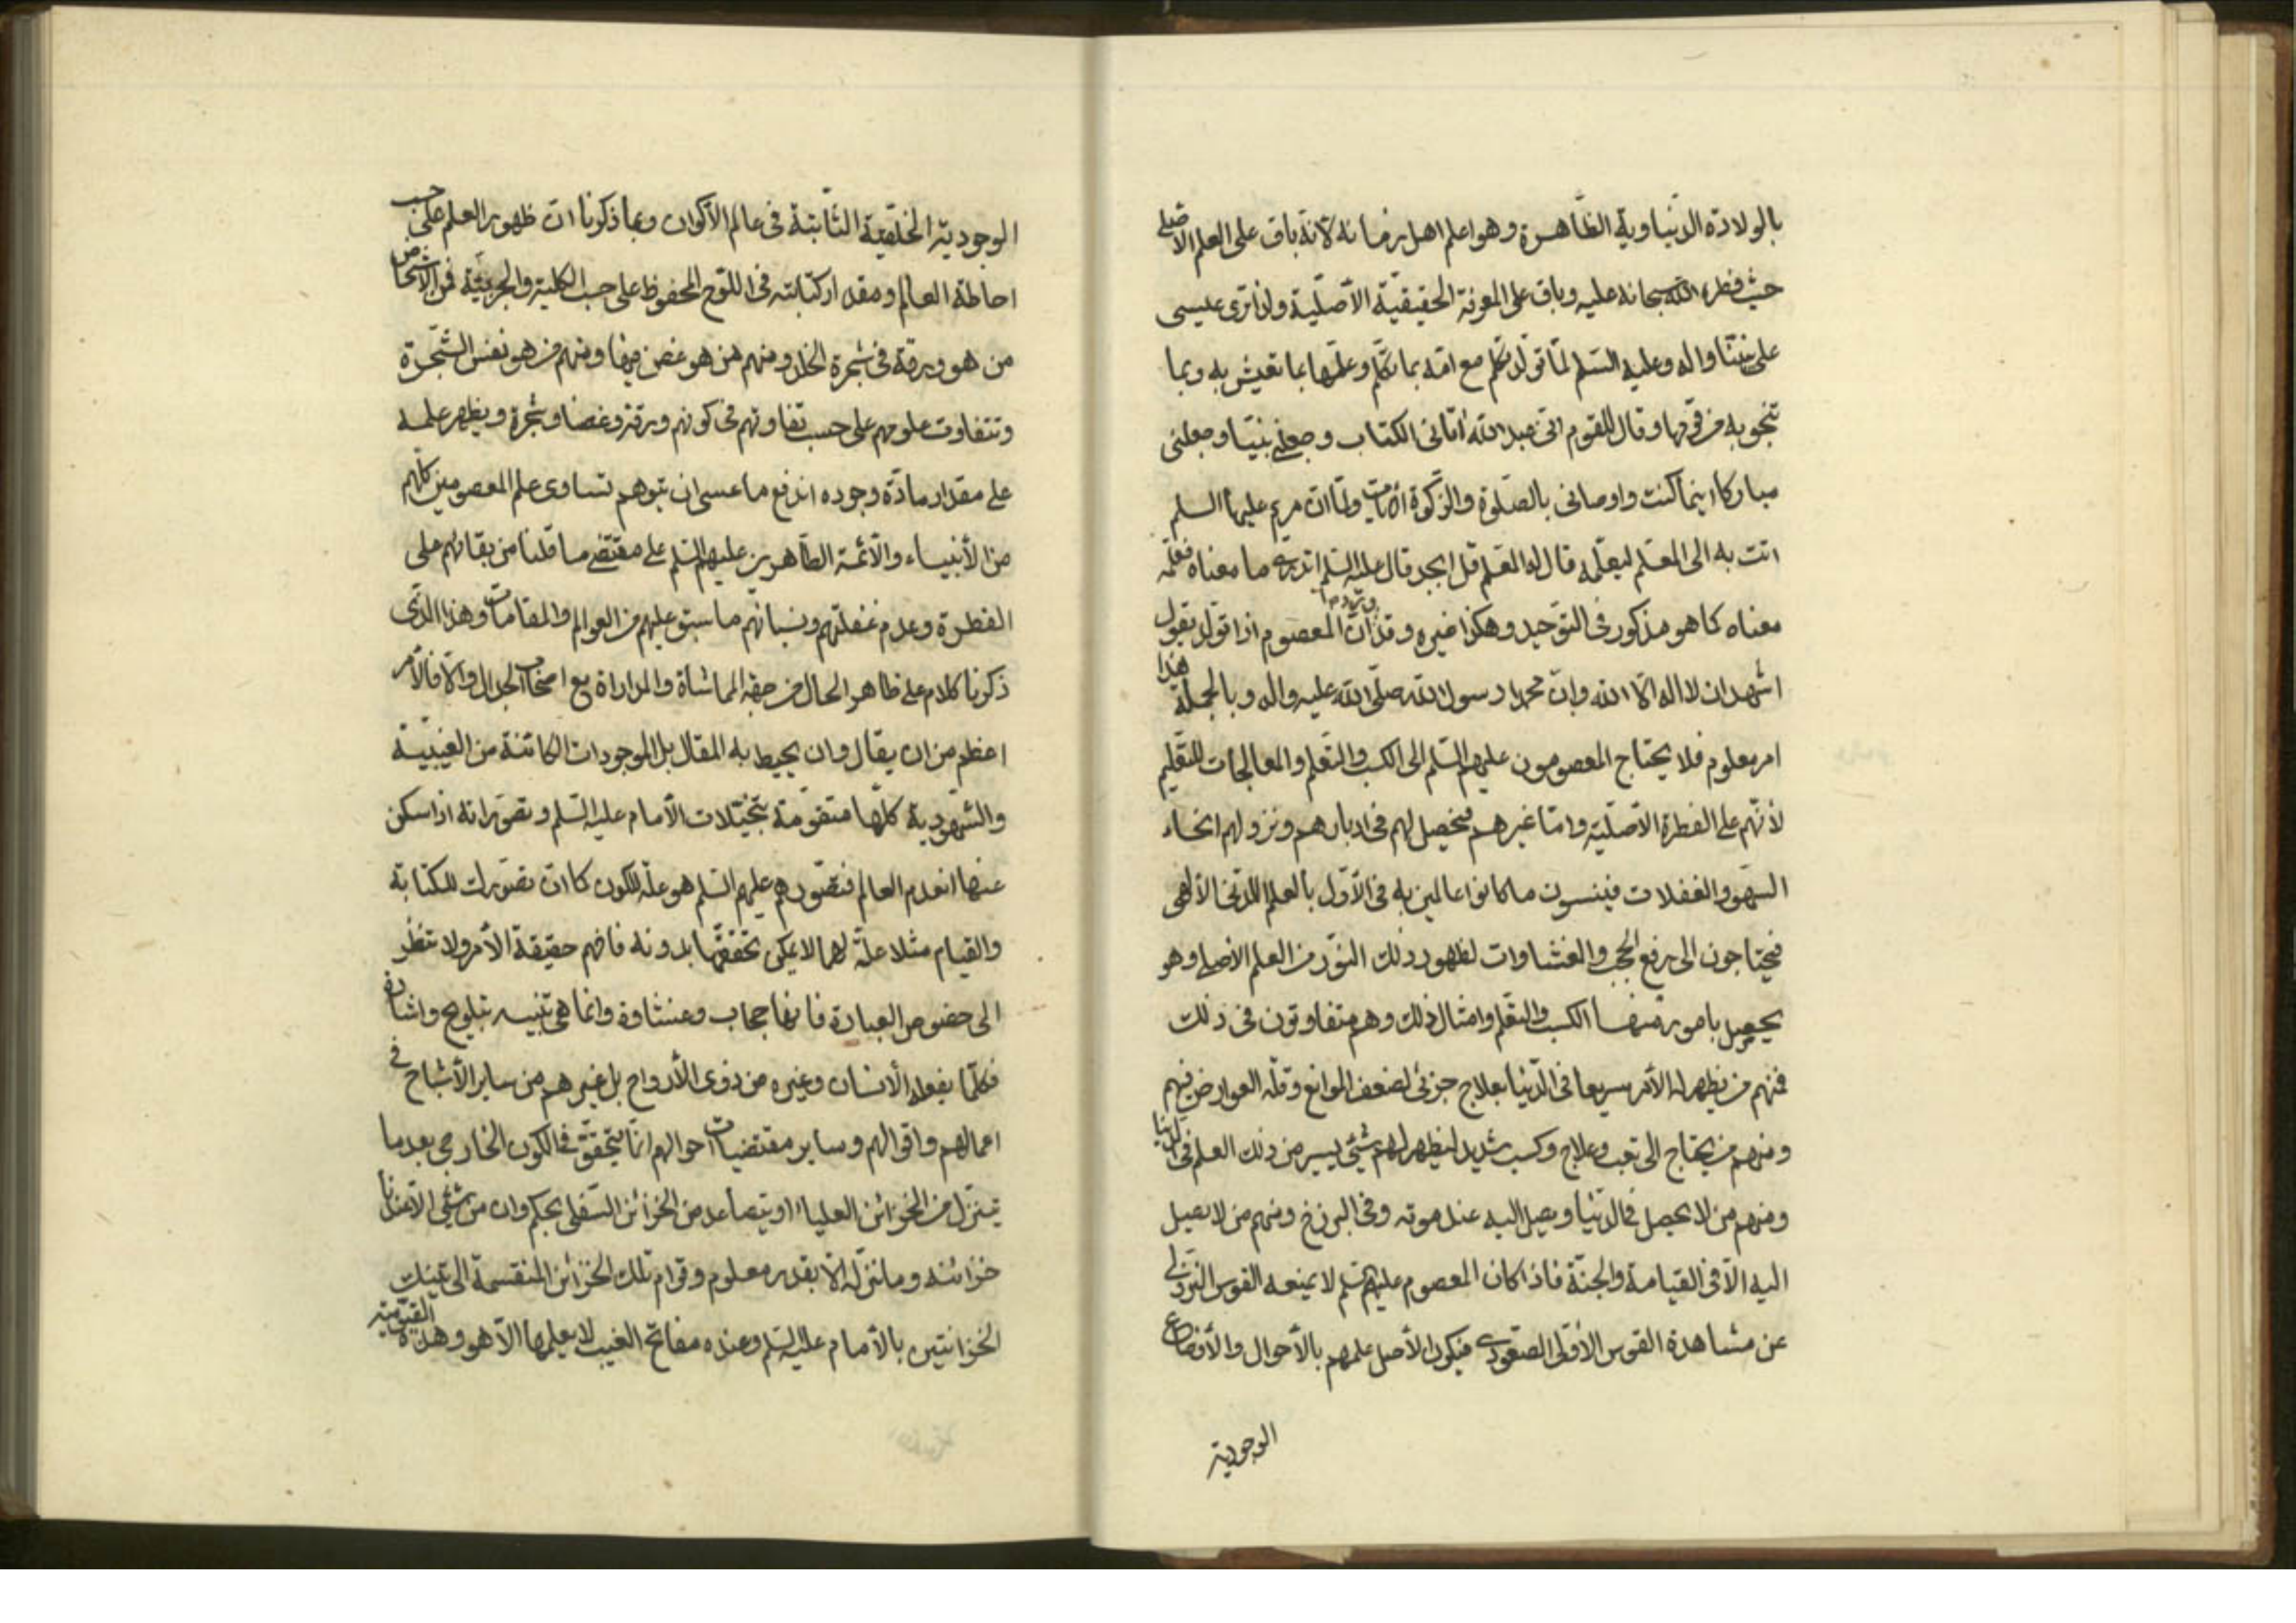 بالولادة الدنياوية الظاهرة وهو اعلم اهل زمانه لانه باق على العلم الاصلي
حيث فطره الله سبحانه عليه وباق على المعرفة الحقيقية الأصلية ولذا ترى عيسى
على نبينا واله وعليه السلم لما تولد تكلم مع امه بما تكلم وعلمها بما تعيش به وبما
تنجو به من قومها وقال للقوم انى عبد الله اتانى الكتاب وجعلني نبيا وجعلنى
مباركا اينما كنت واوصانى بالصلوة والزكوة ما دمت ولما ان مريم عليها السلم
اتت به الى المعلم ليعلمه قال له المعلم قل ابجد قال عليه السلم اتدري ما معناه فعلمه
معناه كما هو مذكور فى التوحيد وهكذا غيره وقد ورد ان المعصوم اذا تولد يقول
اشهد ان لا اله الا الله وان محمدا رسول الله صلى الله عليه واله وبالجملة هذا
امر معلوم فلا يحتاج المعصومون عليهم السلم الى الكسب والتعلم والمعالجات للتعليم
لأنهم على الفطرة الأصلية واما غيرهم فيحصل لهم فى ادبارهم ونزولهم انحاء
السهو والغفلات فينسون ما كانوا عالمين به فى الأول بالعلم اللدنى الألهى
فيحتاجون الى رفع الحجب والغشاوات لظهور ذلك النور من العلم الاصلي وهو
يحصل بامور منها الكسب والتعلم وامثال ذلك وهم متفاوتون فى ذلك
فمنهم من يظهر له الأمر سريعا فى الدنيا بعلاج جزئى لضعف الموانع وقلة العوارض فيهم
ومنهم من يحتاج الى تعب وعلاج وكسب شديد ليظهر لهم شيئ يسير من ذلك العلم فى الدنيا
ومنهم من لا يحصل فى الدنيا ويصل اليه عند موته وفى البرزخ ومنهم من لا يصل
اليه الا فى القيامة والجنة فاذا كان المعصوم عليهم السلم لا يمنعه القوس النزولي
عن مشاهدة القوس الأولى الصعودي فيكون الأصل علمهم بالأحوال والأوضاع
الوجودية
الوجودية الخلقية الثابتة فى عالم الأكوان وبما ذكرنا ان ظهور العلم على حسب
احاطة العالم ومقدار كتابته فى اللوح المحفوظ على حسب الكلية والجزئية فمن الأشخاص
من هو ورقة فى شجرة الخلد ومنهم من هو غصن فيها ومنهم من هو نفس الشجرة
وتتفاوت علومهم على حسب تفاوتهم فى كونهم ورقة وغصنا وشجرة ويظهر علمه
على مقدار مادة وجوده اندفع ما عسى ان يتوهم تساوى علم المعصومين كلهم
من الأنبياء والأئمة الطاهرين عليهم السلم على مقتضى ما قلنا من بقائهم على
الفطرة وعدم غفلتهم ونسيانهم ما سبق عليهم من العوالم والمقامات وهذا الذى
ذكرنا كلام على ظاهر الحال من جهة المماشاة والمداراة مع اصحاب الجدال والا فالأمر
اعظم من ان يقال وان يحيط به المقال بل الموجودات الكائنة من الغيبية
والشهودية كلها متقومة بتخيلات الأمام عليه السلم وتصوراته اذا سكن
عنها انعدم العالم فتصورهم عليهم السلم هو علة الكون كما ان تصورك للكتابة
والقيام مثلا علة لهما لا يمكن تحققهما بدونه فافهم حقيقة الأمر ولا تنظر
الى خصوص العبارة فانها حجاب وغشاوة وانما هى تنبيه تلويح واشارة
فكلما يفعله الأنسان وغيره من ذوى الأرواح بل غيرهم من ساير الأشباح في
اعمالهم واقوالهم وساير مقتضيات احوالهم انما يتحقق فى الكون الخارجى بعد ما
تنزل من الخزائن العلياء او يتصاعد من الخزائن السفلى بحكم وان من شئ الا عندنا
خزائنه وما ننزله الا بقدر معلوم وقوام تلك الخزائن المنقسمة الى تينك
الخزانتين بالأمام عليه السلم وعنده مفاتح الغيب لا يعلمها الا هو وهذه القيومية